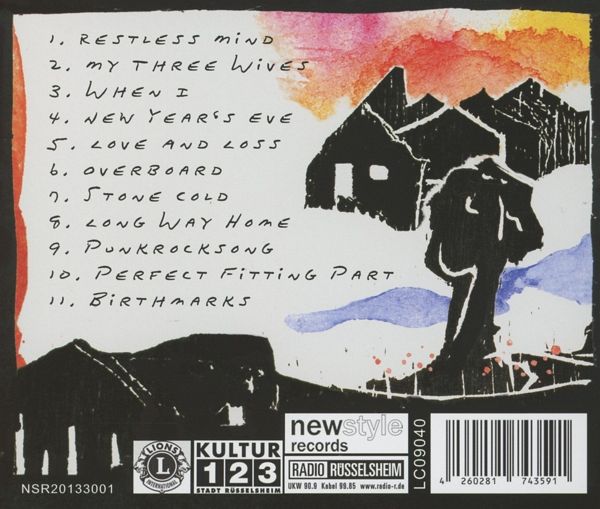 1. RESTLESS MIND
2. MY THREE WIVES
3. WHEN I
4. NEW YEAR'S EVE
5. LOVE AND LOSS
6. OVERBOARD
7. STONE COLD
8. LONG WAY HOME
9. PUNKROCKSONG
10. PERFECT FITTING PART
11. BIRTHMARKS
NSR20133001
LIONS
L
INTERNATIONAL
KULTUR
123
STADT RÜSSELSHEIM
newstyle
records
RADIO RÜSSELSHEIM
UKW 90.9 Kabel 99.85 www.radio-r.de
LC09040
4 260281 743591